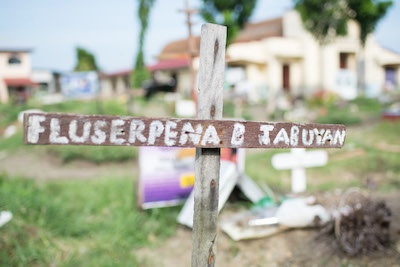 FLUSERPENA B TABUYAN